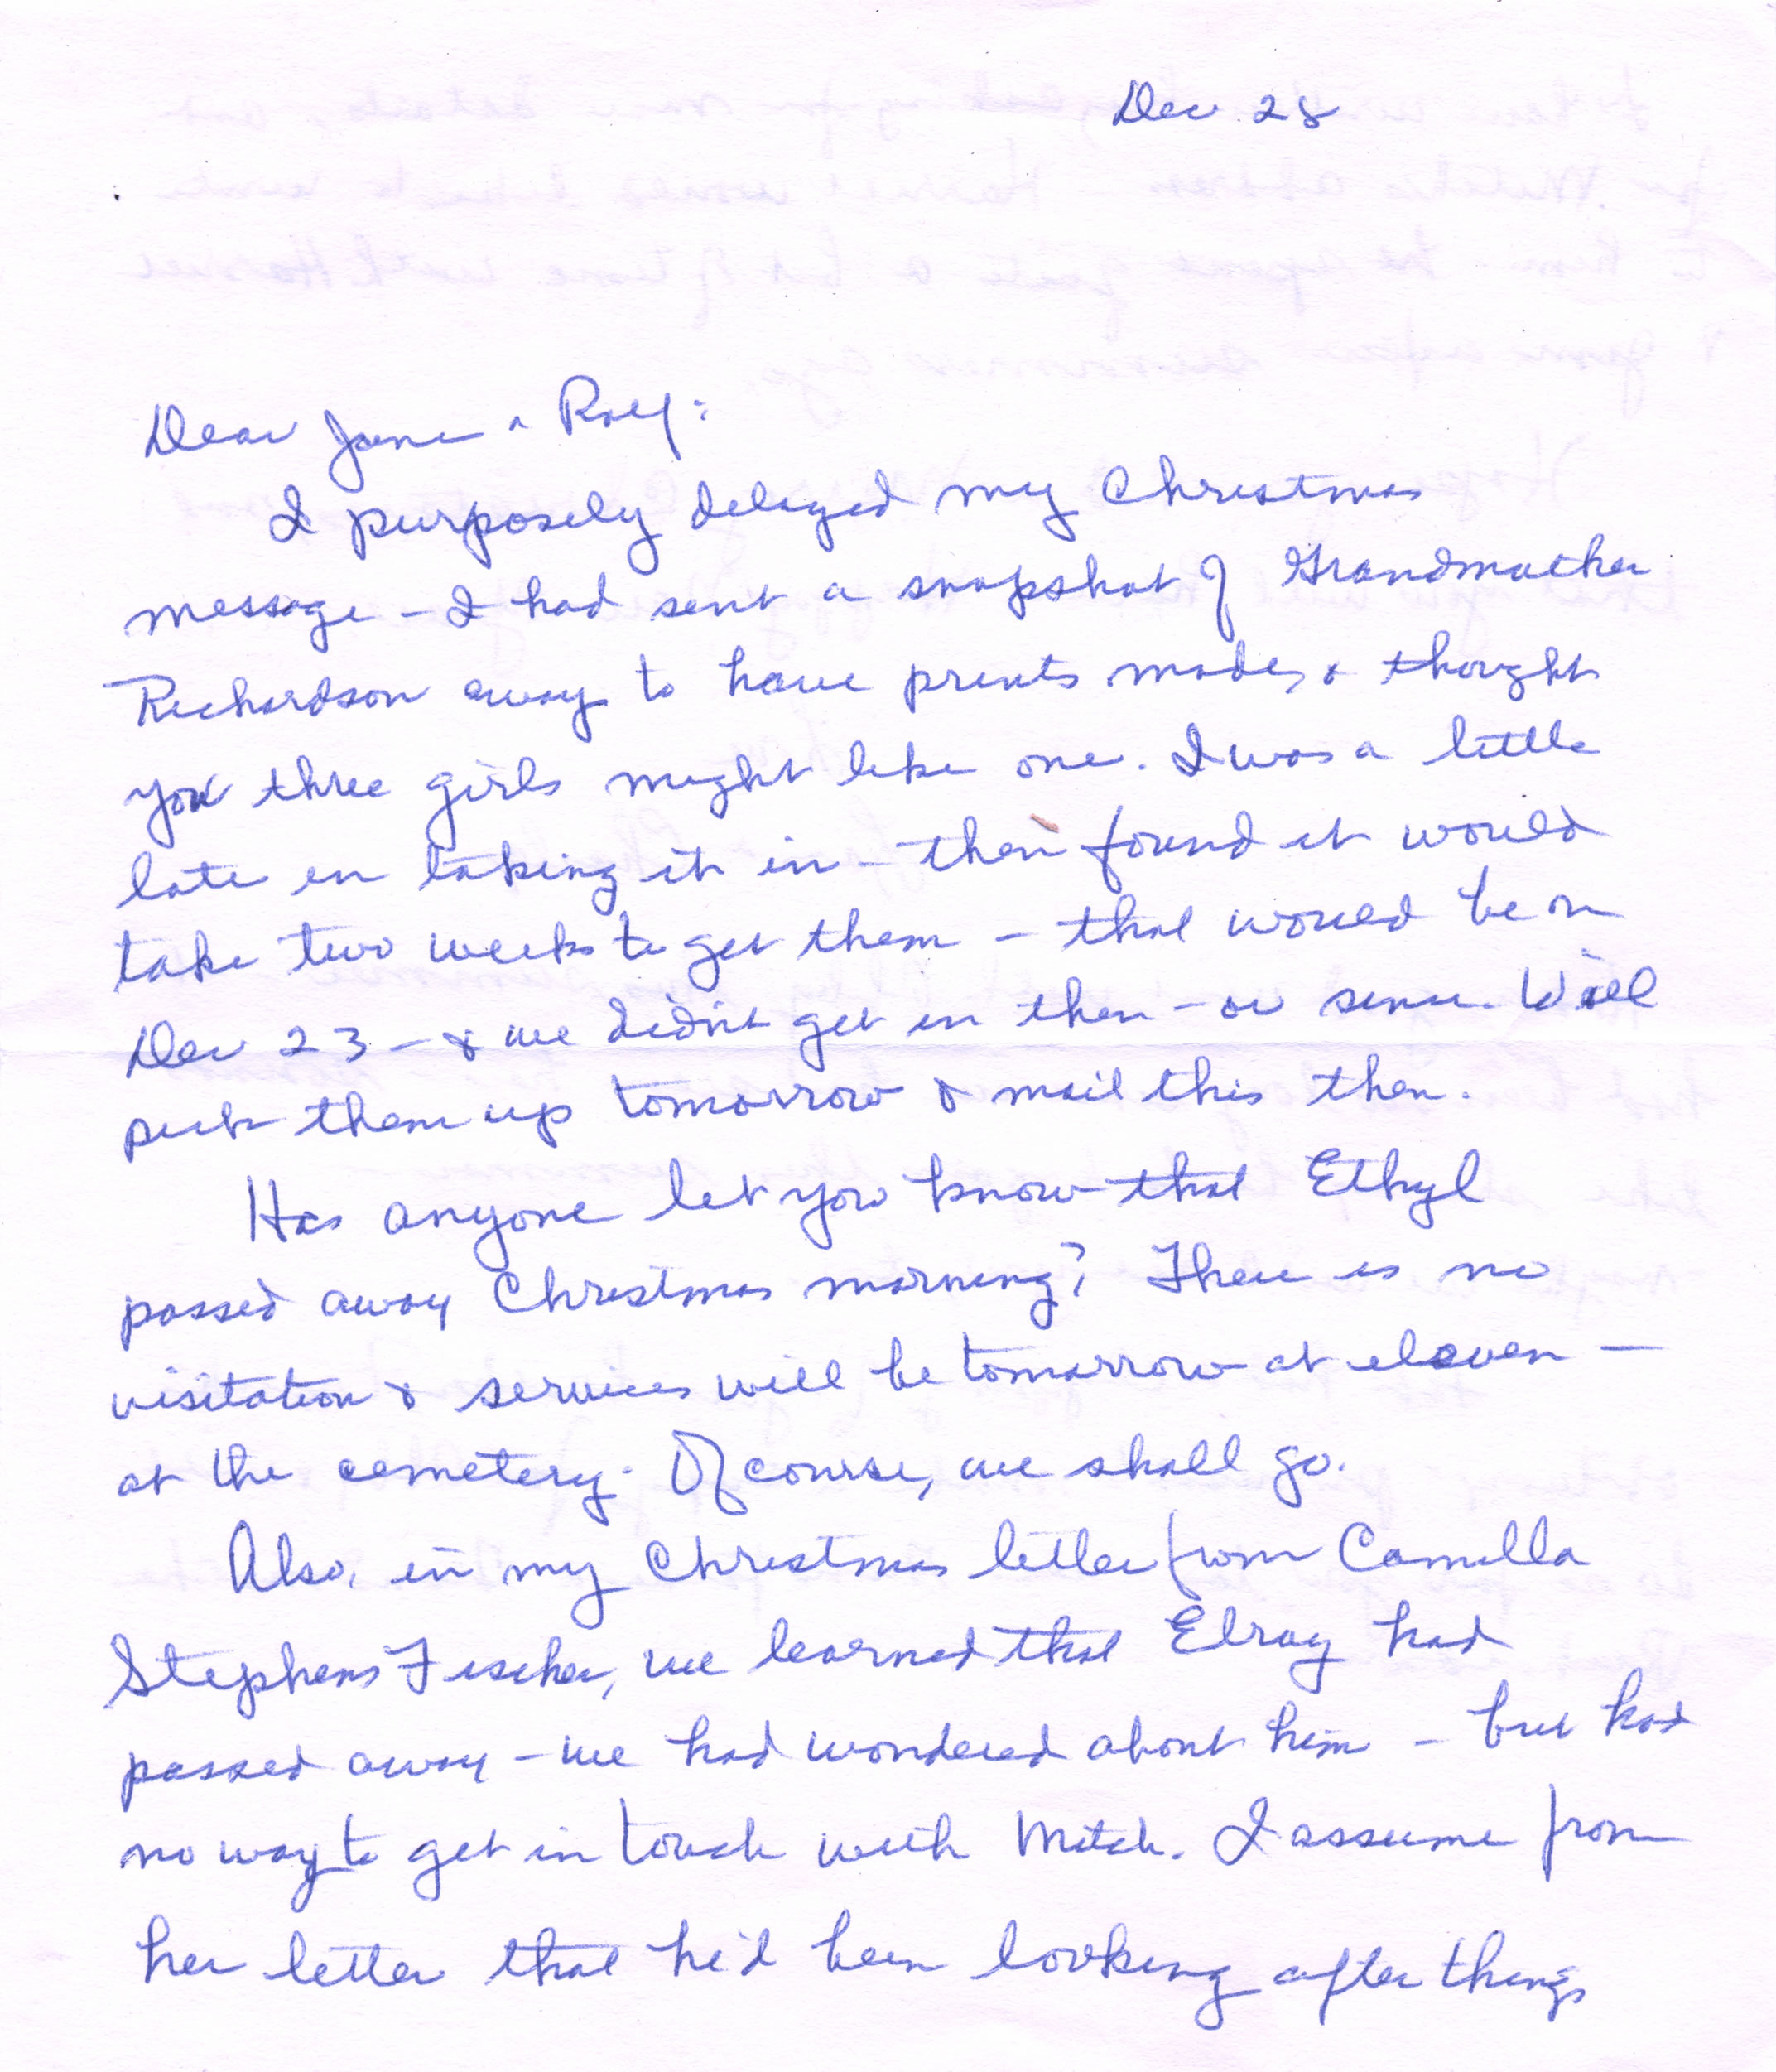 Dec 28
Dear Jane & Roy:
I purposely delayed my Christmas
message - I had sent a snapshot of Grandmother
Richardson away to have prints made, & thought
you three girls might like one. I was a little
late in taking it in - then found it would
take two weeks to get them - that would be on
Dec 23 - & we didn't get in then - or since. Will
pick them up tomorrow & mail this then.
Has anyone let you know that Ethyl
passed away Christmas morning? There is no
visitation & services will be tomorrow at eleven —
at the cemetery. Of course, we shall go.
Also, in my Christmas letter from Camilla
Stephens Fischer, we learned that Elroy had
passed away - we had wondered about him - but had
no way to get in touch with Mitch. I assume from
her letter that he'd been looking after things